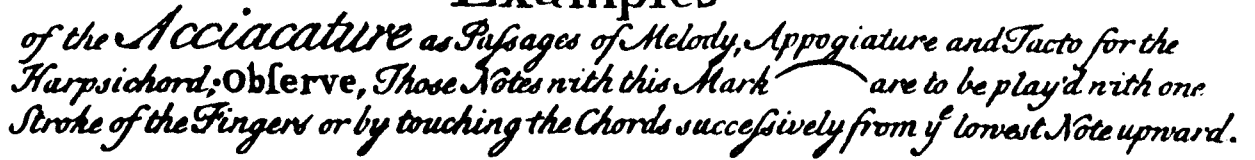 Examples
of the Acciacature as Paſsages of Melody, Appogiature and Tacto for the
Harpsichord; Obſerve, Those Notes with this Mark are to be play'd with one
Stroke of the Fingers or by touching the Chords succeſsively from yᵉ lowest Note upward.